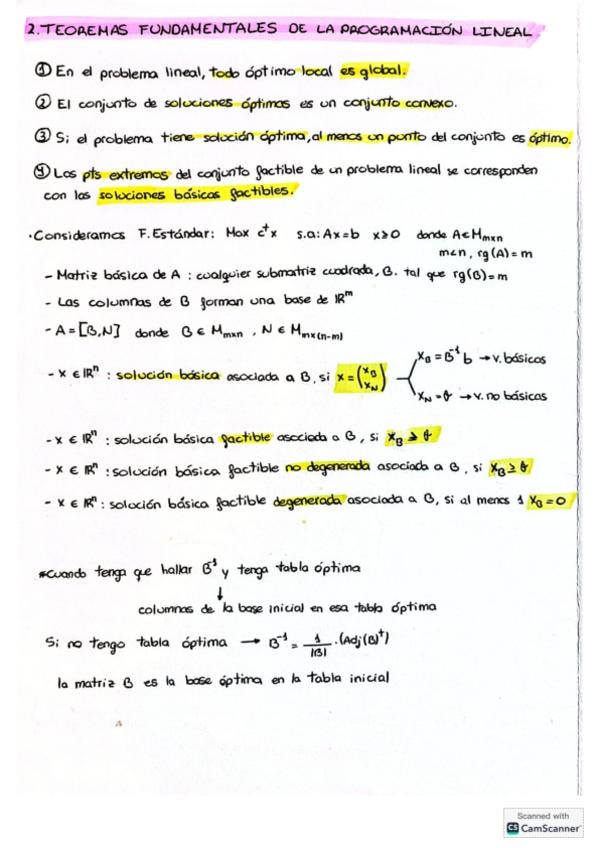 2. TEOREMAS FUNDAMENTALES DE LA PROGRAMACIÓN LINEAL
① En el problema lineal, todo óptimo local es global.
② El conjunto de soluciones óptimas es un conjunto convexo.
③ Si el problema tiene solución óptima, al menos un punto del conjunto es óptimo.
④ Los pts extremos del conjunto factible de un problema lineal se corresponden
con las soluciones básicas factibles.
· Consideramos F. Estándar: Max cᵗx s.a: Ax=b x≥0 donde A∈Mmxn
m<n, rg(A)=m
- Matriz básica de A : cualquier submatriz cuadrada, B. tal que rg(B)=m
- Las columnas de B forman una base de ℝᵐ
- A=[B,N] donde B ∈ Mmxn , N ∈ Mmx(n-m)
- x ∈ ℝⁿ : solución básica asociada a B, si x = (xB xN)
xB = B⁻¹b → v. básicas
xN = θ → v. no básicas
- x ∈ ℝⁿ : solución básica factible asociada a B, si xB ≥ θ
- x ∈ ℝⁿ : solución básica factible no degenerada asociada a B, si xB ≥ θ
- x ∈ ℝⁿ : solución básica factible degenerada asociada a B, si al menos 1 xB = 0
*Cuando tenga que hallar B⁻¹ y tenga tabla óptima
↓
columnas de la base inicial en esa tabla óptima
Si no tengo tabla óptima → B⁻¹ = 1/|B| · (Adj(B)ᵗ)
la matriz B es la base óptima en la tabla inicial
Scanned with
CS CamScanner